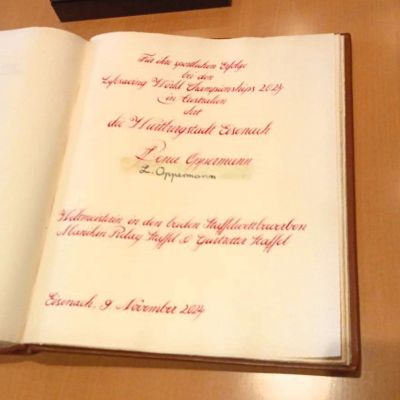 Für ihre sportlichen Erfolge
bei den
Lifesaving World Championships 2024
in Australien
ehrt
die Wartburgstadt Eisenach
Lena Oppermann
L. Oppermann
Weltmeisterin in den beiden Staffelwettbewerben
Manikin Relay Staffel & Gurtretter Staffel
Eisenach, 9 November 2024